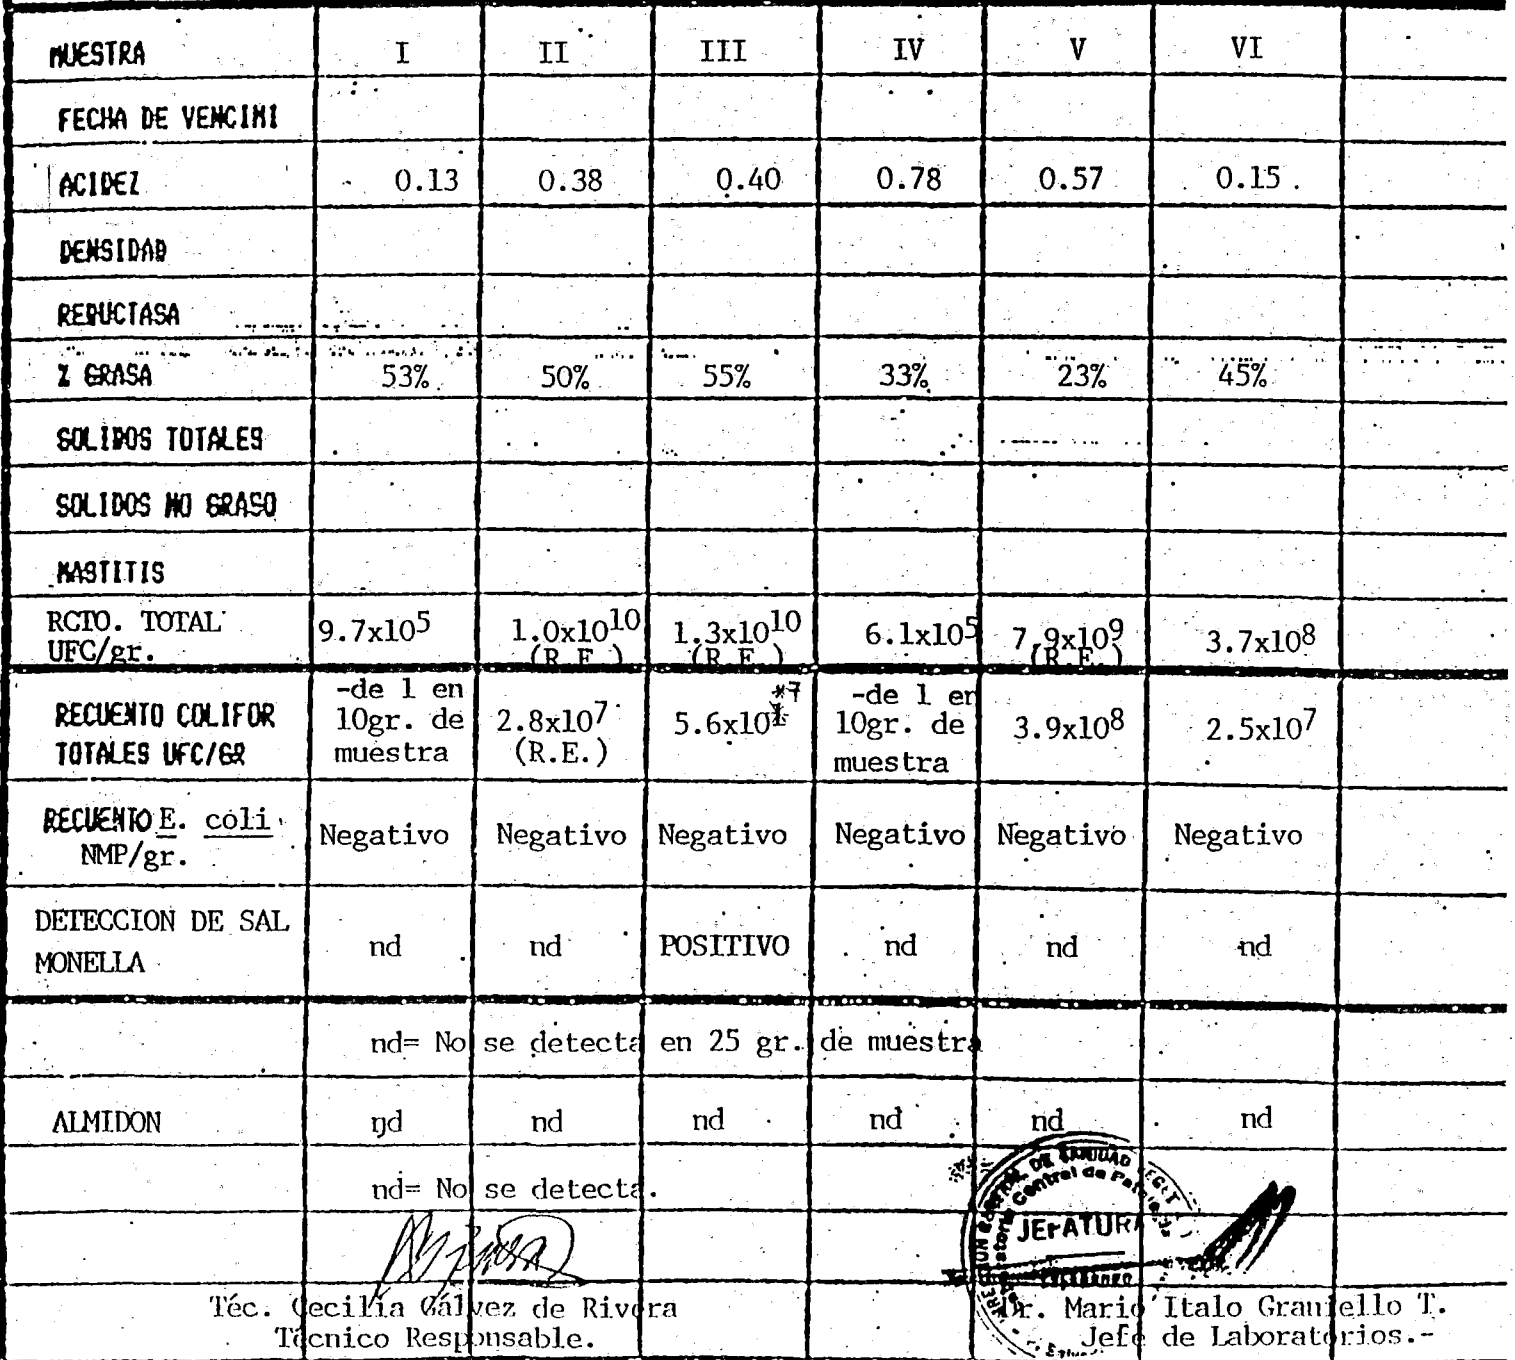 MUESTRA I II III IV V VI
FECHA DE VENCIMI
ACIDEZ 0.13 0.38 0.40 0.78 0.57 0.15
DENSIDAD
REDUCTASA
% GRASA 53% 50% 55% 33% 23% 45%
SOLIDOS TOTALES
SOLIDOS NO GRASO
MASTITIS
RCTO. TOTAL UFC/gr. 9.7x10⁵ 1.0x10¹⁰ (R.E.) 1.3x10¹⁰ (R.E.) 6.1x10⁵ 7.9x10⁹ (R.E.) 3.7x10⁸
RECUENTO COLIFOR TOTALES UFC/GR -de 1 en 10gr. de muestra 2.8x10⁷ (R.E.) 5.6x10 *7 -de 1 en 10gr. de muestra 3.9x10⁸ 2.5x10⁷
RECUENTO E. coli NMP/gr. Negativo Negativo Negativo Negativo Negativo Negativo
DETECCION DE SAL MONELLA nd nd POSITIVO nd nd nd
nd= No se detecta en 25 gr. de muestra
ALMIDON nd nd nd nd nd nd
nd= No se detecta.
DE SANIDAD
Central de
JEFATURA
Téc. Cecilia Gálvez de Rivera
Técnico Responsable.
Dr. Mario Italo Graniello T.
Jefe de Laboratorios.-